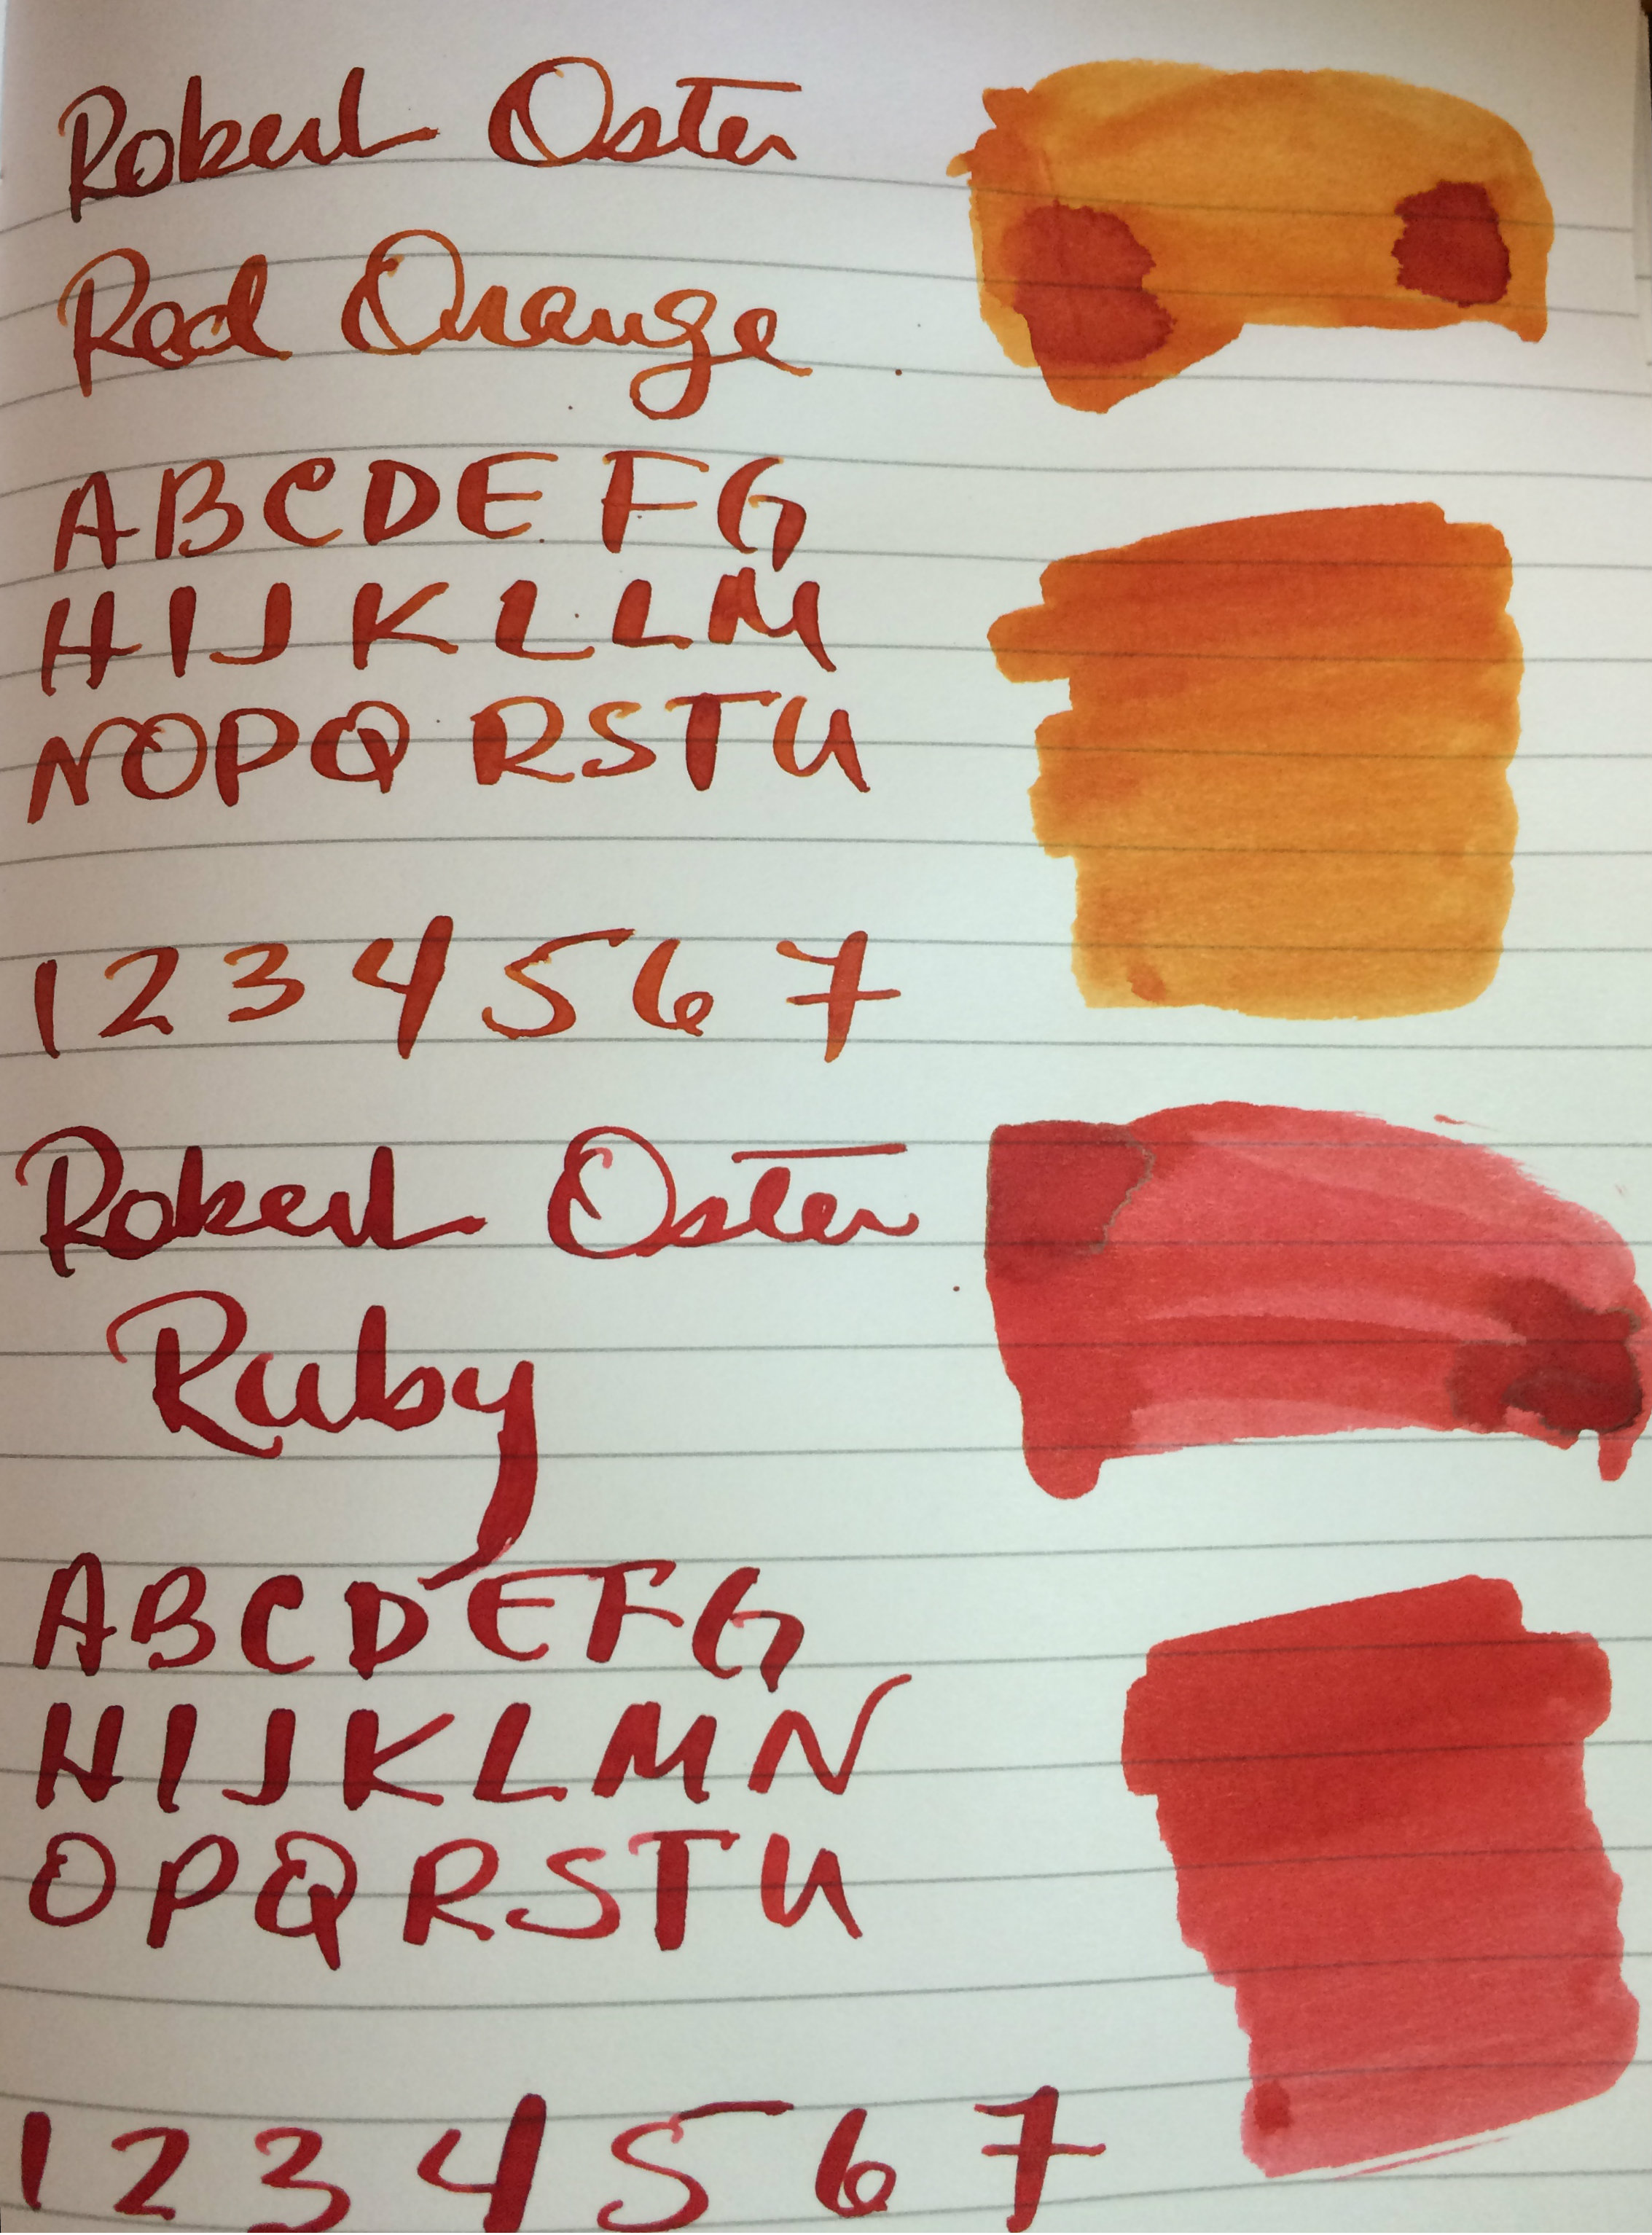 Robert Oster
Red Orange
A B C D E F G
H I J K L L M
N O P Q R S T U
1 2 3 4 5 6 7
Robert Oster
Ruby
A B C D E F G
H I J K L M N
O P Q R S T U
1 2 3 4 5 6 7